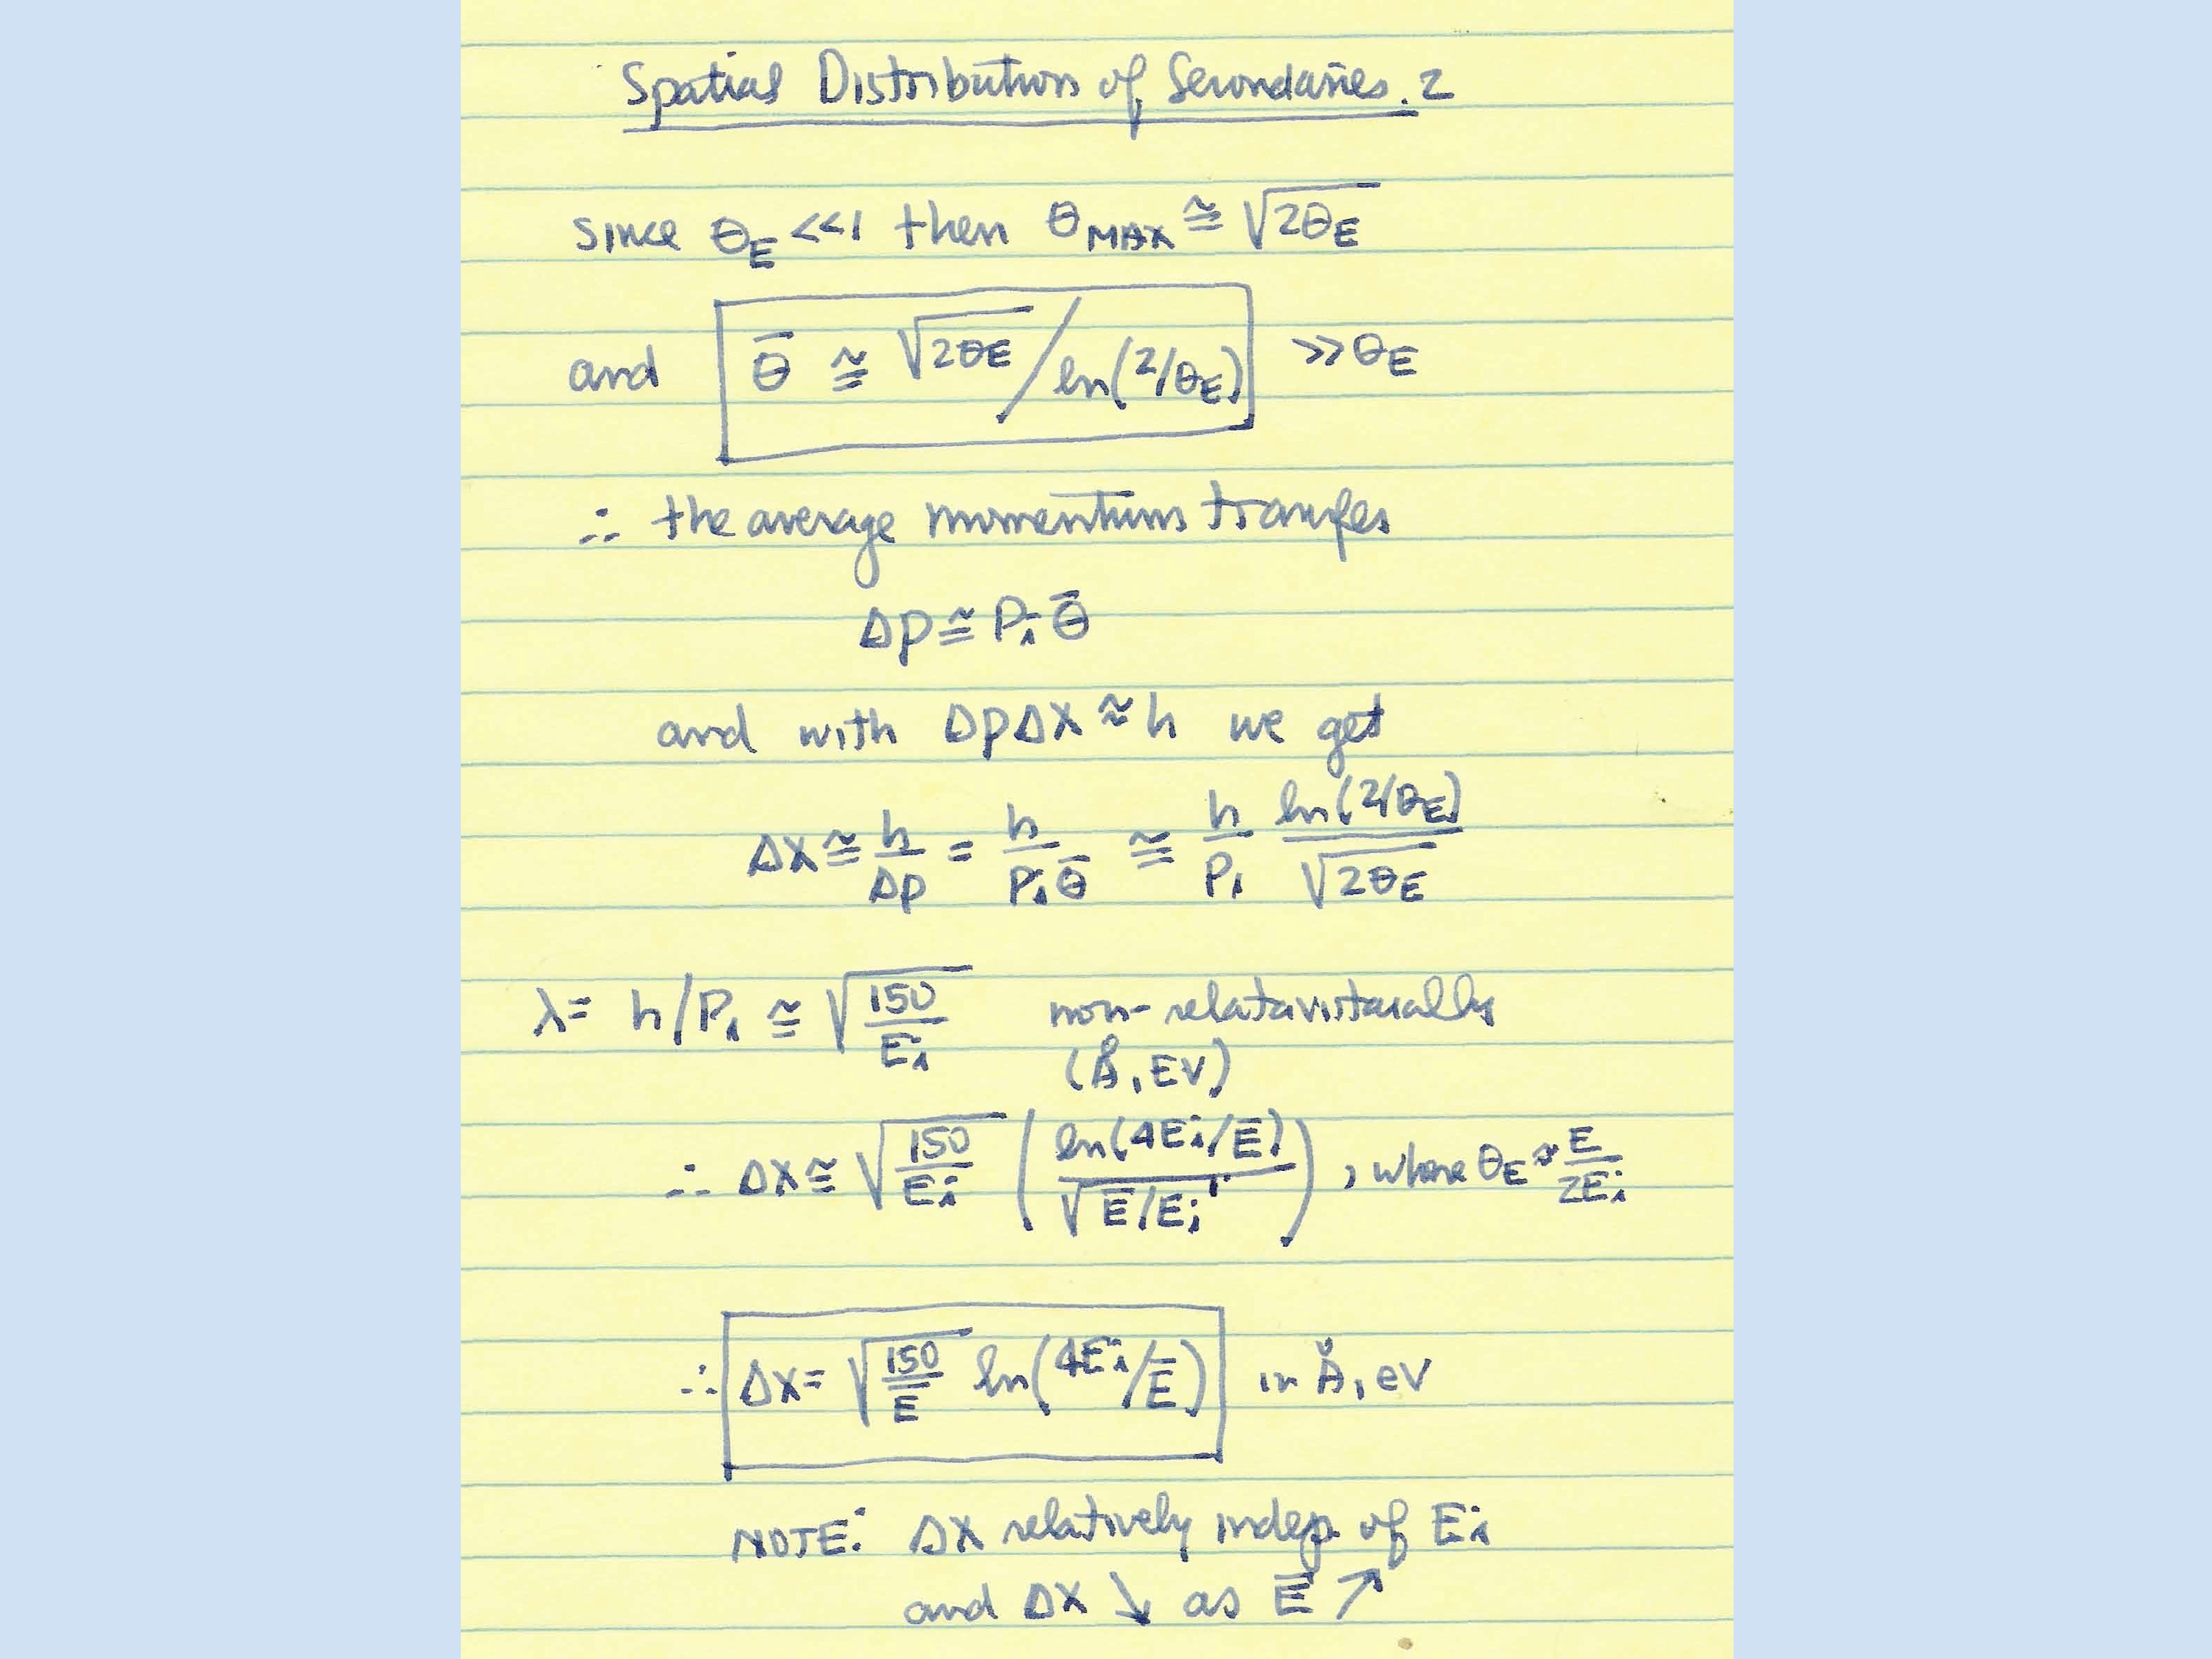 Spatial Distribution of Secondaries. 2
since θ_E <<1 then θ_MAX ≅ √2θ_E
and θ̄ ≅ √2θ_E / ln(2/θ_E) >> θ_E
∴ the average momentum transfer
Δp ≅ P_i θ̄
and with ΔpΔx ≈ h we get
Δx ≅ h/Δp = h/P_i θ̄ ≅ h/P_i ln(2/θ_E)/√2θ_E
λ = h/P_i ≅ √150/E_i non-relativistically
(Å, EV)
∴ Δx ≅ √150/E_i (ln(4E_i/Ē)/√Ē/E_i), where θ_E ≈ E/2E_i
∴ Δx = √150/Ē ln(4E_i/Ē) in Å, eV
NOTE: Δx relatively indep. of E_i
and Δx ↘ as Ē ↗